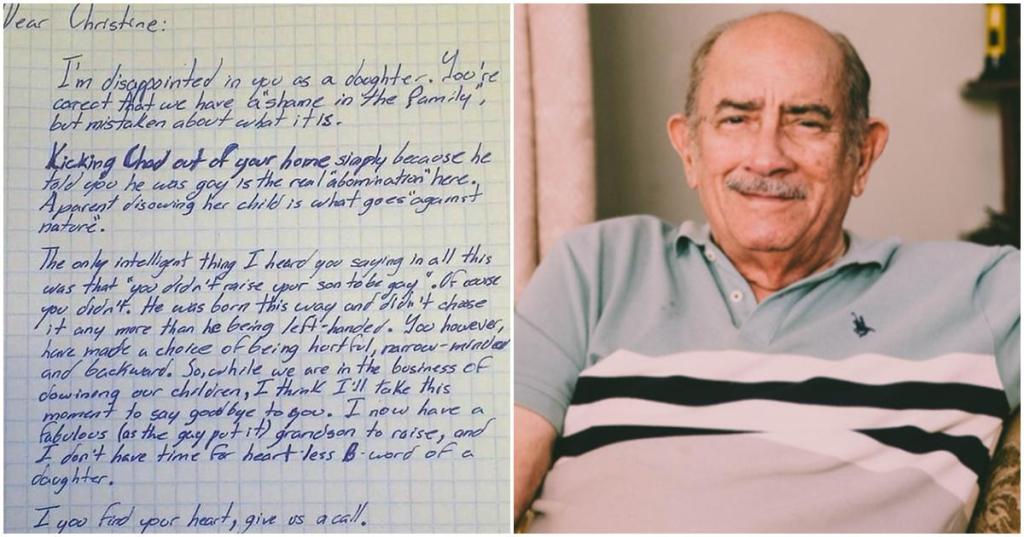 Dear Christine:
I'm disappointed in you as a daughter. You're
correct that we have a "shame in the family",
but mistaken about what it is.
Kicking Chad out of your home simply because he
told you he was gay is the real "abomination" here.
A parent disowing her child is what goes "against
nature".
The only intelligent thing I heard you saying in all this
was that "you didn't raise your son to be gay". Of course
you didn't. He was born this way and didn't choose
it any more than he being left-handed. You however,
have made a choice of being hurtful, narrow-minded
and backward. So, while we are in the business of
disowning our children, I think I'll take this
moment to say goodbye to you. I now have a
fabulous (as the gay put it) grandson to raise, and
I don't have time for heart-less B-word of a
daughter.
I you find your heart, give us a call.